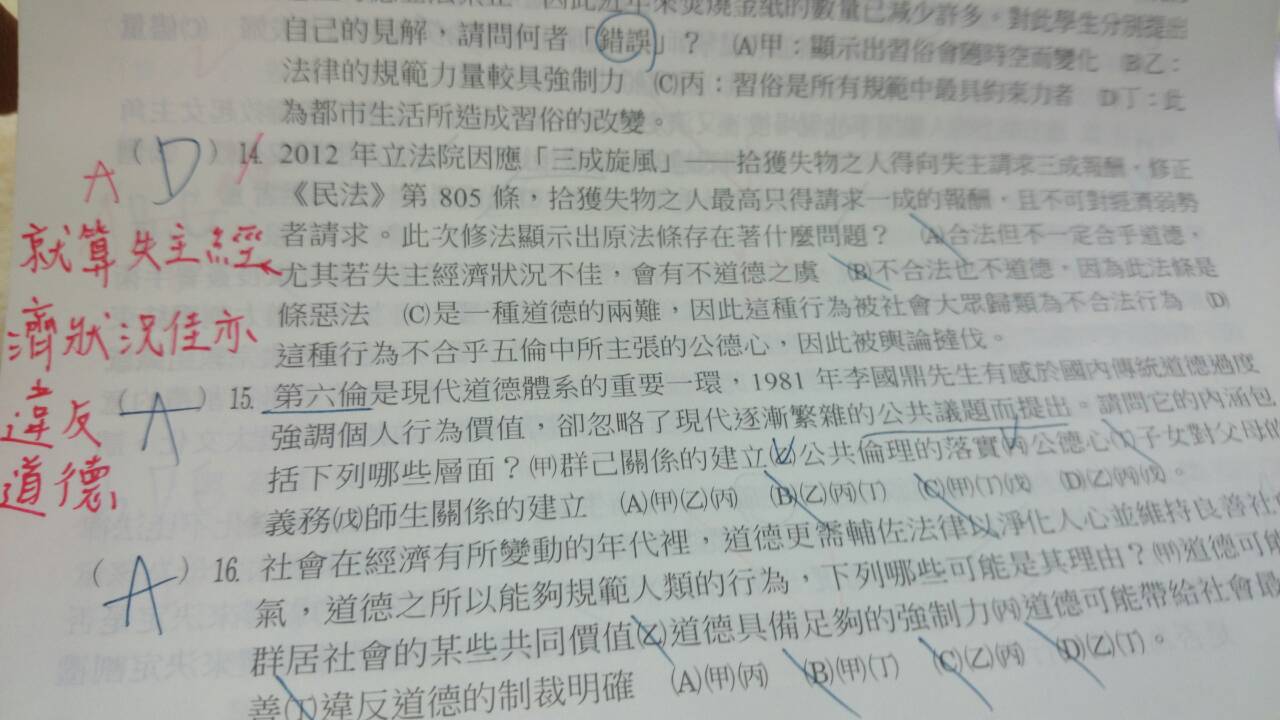 因此近年來焚燒金紙的數量已減少許多。對此學生分別提出
自己的見解，請問何者「錯誤」？ (A)甲：顯示出習俗會隨時空而變化 (B)乙：
法律的規範力量較具強制力 (C)丙：習俗是所有規範中最具約束力者 (D)丁：此
為都市生活所造成習俗的改變。
( D ) 14. 2012 年立法院因應「三成旋風」——拾獲失物之人得向失主請求三成報酬，修正
《民法》第 805 條，拾獲失物之人最高只得請求一成的報酬，且不可對經濟弱勢
者請求。此次修法顯示出原法條存在著什麼問題？ (A)合法但不一定合乎道德，
尤其若失主經濟狀況不佳，會有不道德之虞 (B)不合法也不道德，因為此法條是
條惡法 (C)是一種道德的兩難，因此這種行為被社會大眾歸類為不合法行為 (D)
這種行為不合乎五倫中所主張的公德心，因此被輿論撻伐。
A
就算失主經
濟狀況佳亦
違反
道德
( A ) 15. 第六倫是現代道德體系的重要一環，1981 年李國鼎先生有感於國內傳統道德過度
強調個人行為價值，卻忽略了現代逐漸繁雜的公共議題而提出。請問它的內涵包
括下列哪些層面？(甲)群己關係的建立(乙)公共倫理的落實(丙)公德心(丁)子女對父母的
義務(戊)師生關係的建立 (A)(甲)(乙)(丙) (B)(乙)(丙)(丁) (C)(甲)(丁)(戊) (D)(乙)(丙)(戊)。
( A ) 16. 社會在經濟有所變動的年代裡，道德更需輔佐法律以淨化人心並維持良善社
氣，道德之所以能夠規範人類的行為，下列哪些可能是其理由？(甲)道德可能
群居社會的某些共同價值(乙)道德具備足夠的強制力(丙)道德可能帶給社會最
善(丁)違反道德的制裁明確 (A)(甲)(丙) (B)(甲)(丁) (C)(乙)(丙) (D)(乙)(丁)。